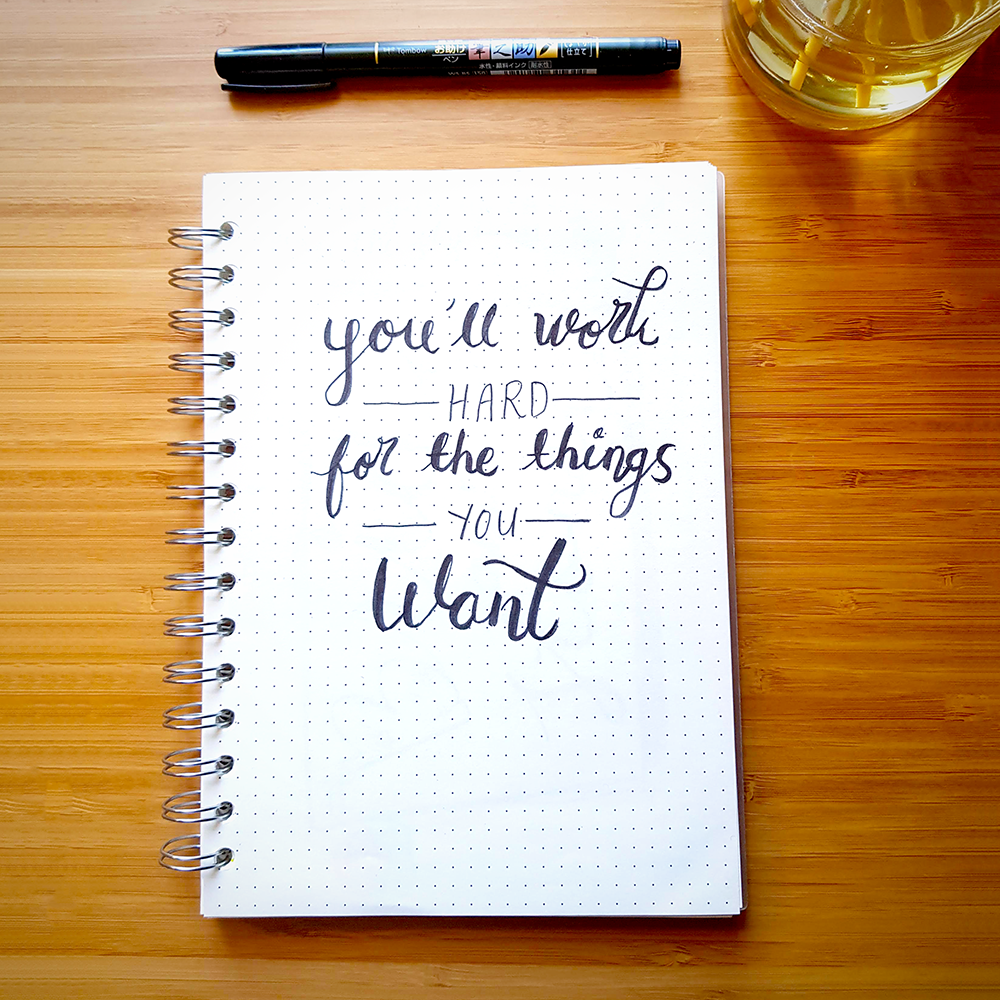 Tombow お助け 筆之助 仕立て
ペン 水性・顔料インク 耐水性
you'll work
HARD
for the things
YOU
want